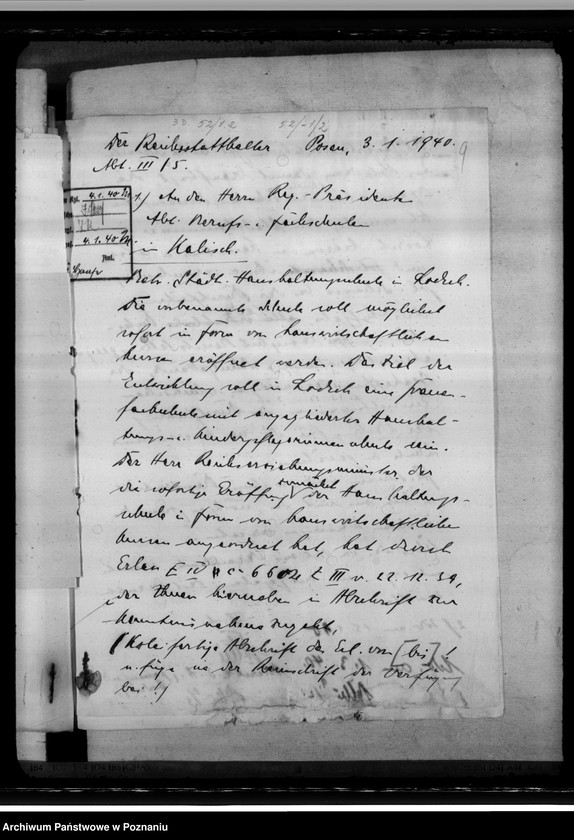 52/1.2 52/-1/2
Der Reichsstatthalter Posen, 3. 1. 1940.
9
Abt. III/5.
4. 1. 40
4. 1. 40
1/ An den Herrn Reg.-Präsidenten
Abt. Berufs- u. Fachschulen
in Kalisch.
Betr. Städt. Haushaltungsschule in Lodsch.
Die vorbenannte Schule soll möglichst
sofort in Form von hauswirtschaftlichen
Kursen eröffnet werden. Das Ziel der
Entwicklung soll in Lodsch eine Frauen-
fachschule mit angegliederter Haushal-
tungs- u. Kinderpflegerinnenschule sein.
Der Herr Reichserziehungsminister, der
die sofortige Eröffnung zunächst der Haushaltungs-
schule in Form von hauswirtschaftlichen
Kursen angeordnet hat, hat durch
Erlass E IV 6602 E III v. 22. 12. 39,
der Ihnen hierneben in Abschrift zur
Kenntnisnahme zugeht
(Kzlei fertige Abschrift des Erl. von [bis]
u. füge sie der Reinschrift der Verfügung
bei!)
Archiwum Państwowe w Poznaniu